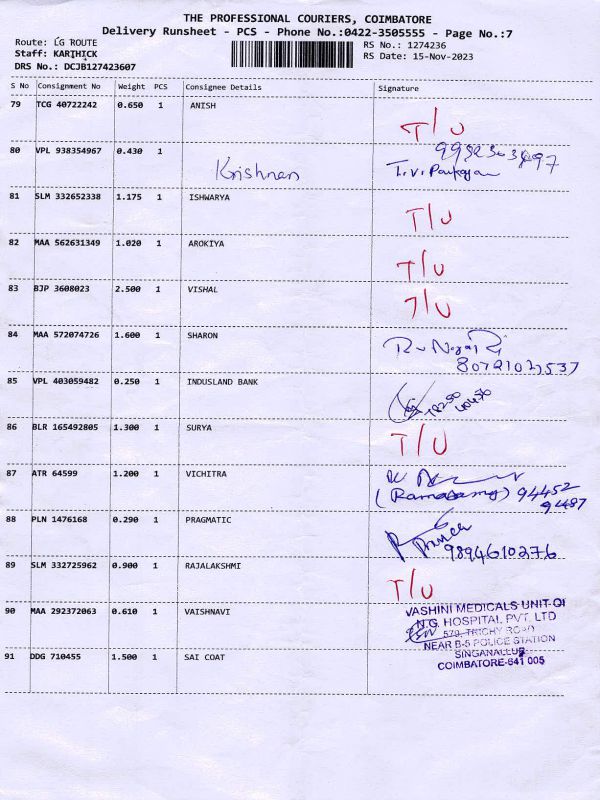 THE PROFESSIONAL COURIERS, COIMBATORE
Delivery Runsheet - PCS - Phone No.:0422-3505555 - Page No.:7
Route: LG ROUTE RS No.: 1274236
Staff: KARTHICK RS Date: 15-Nov-2023
DRS No.: DCJB127423607
S No Consignment No Weight PCS Consignee Details Signature
79 TCG 40722242 0.650 1 ANISH
T/U
80 VPL 938354967 0.430 1
Krishnan
81 SLM 332652338 1.175 1 ISHWARYA
T/U
82 MAA 562631349 1.020 1 AROKIYA
T/U
83 BJP 3608023 2.500 1 VISHAL
T/U
84 MAA 572074726 1.600 1 SHARON
85 VPL 403059482 0.250 1 INDUSLAND BANK
86 BLR 165492805 1.300 1 SURYA
T/U
87 ATR 64599 1.200 1 VICHITRA
(Ramasamy) 94452
94487
88 PLN 1476168 0.290 1 PRAGMATIC
9894610276
89 SLM 332725962 0.900 1 RAJALAKSHMI
T/U
90 MAA 292372063 0.610 1 VAISHNAVI
VASHINI MEDICALS UNIT-OF
N.G. HOSPITAL PVT. LTD
579, TRICHY ROAD
NEAR B-5 POLICE STATION
SINGANALLUR
COIMBATORE-641 005
91 DDG 710455 1.500 1 SAI COAT